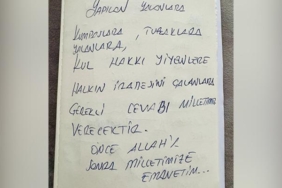 YAPILAN YALANLARA
KUMPASLARA, TUZAKLARA
YALANLARA,
KUL HAKKI YİYENLERE
HALKIN İRADESİNİ ÇALANLARA
GEREKLİ CEVABI MİLLETİMİZ
VERECEKTİR.
ÖNCE ALLAH'A
SONRA MİLLETİMİZE
EMANETİM...